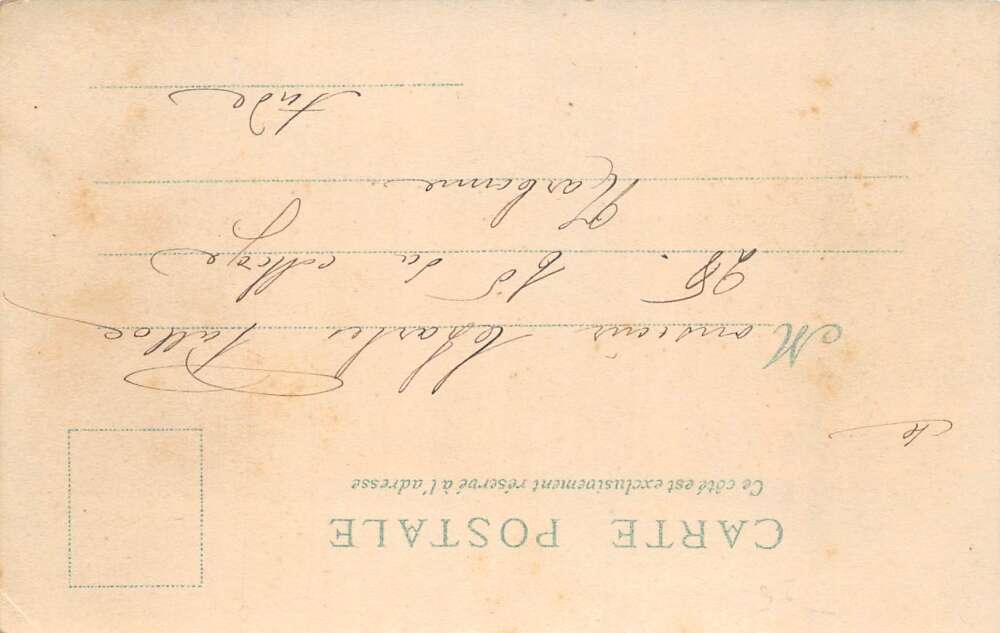 CARTE POSTALE
Ce côté est exclusivement réservé à l'adresse
Monsieur Charles
28. Bd du collège
Narbonne
Aude